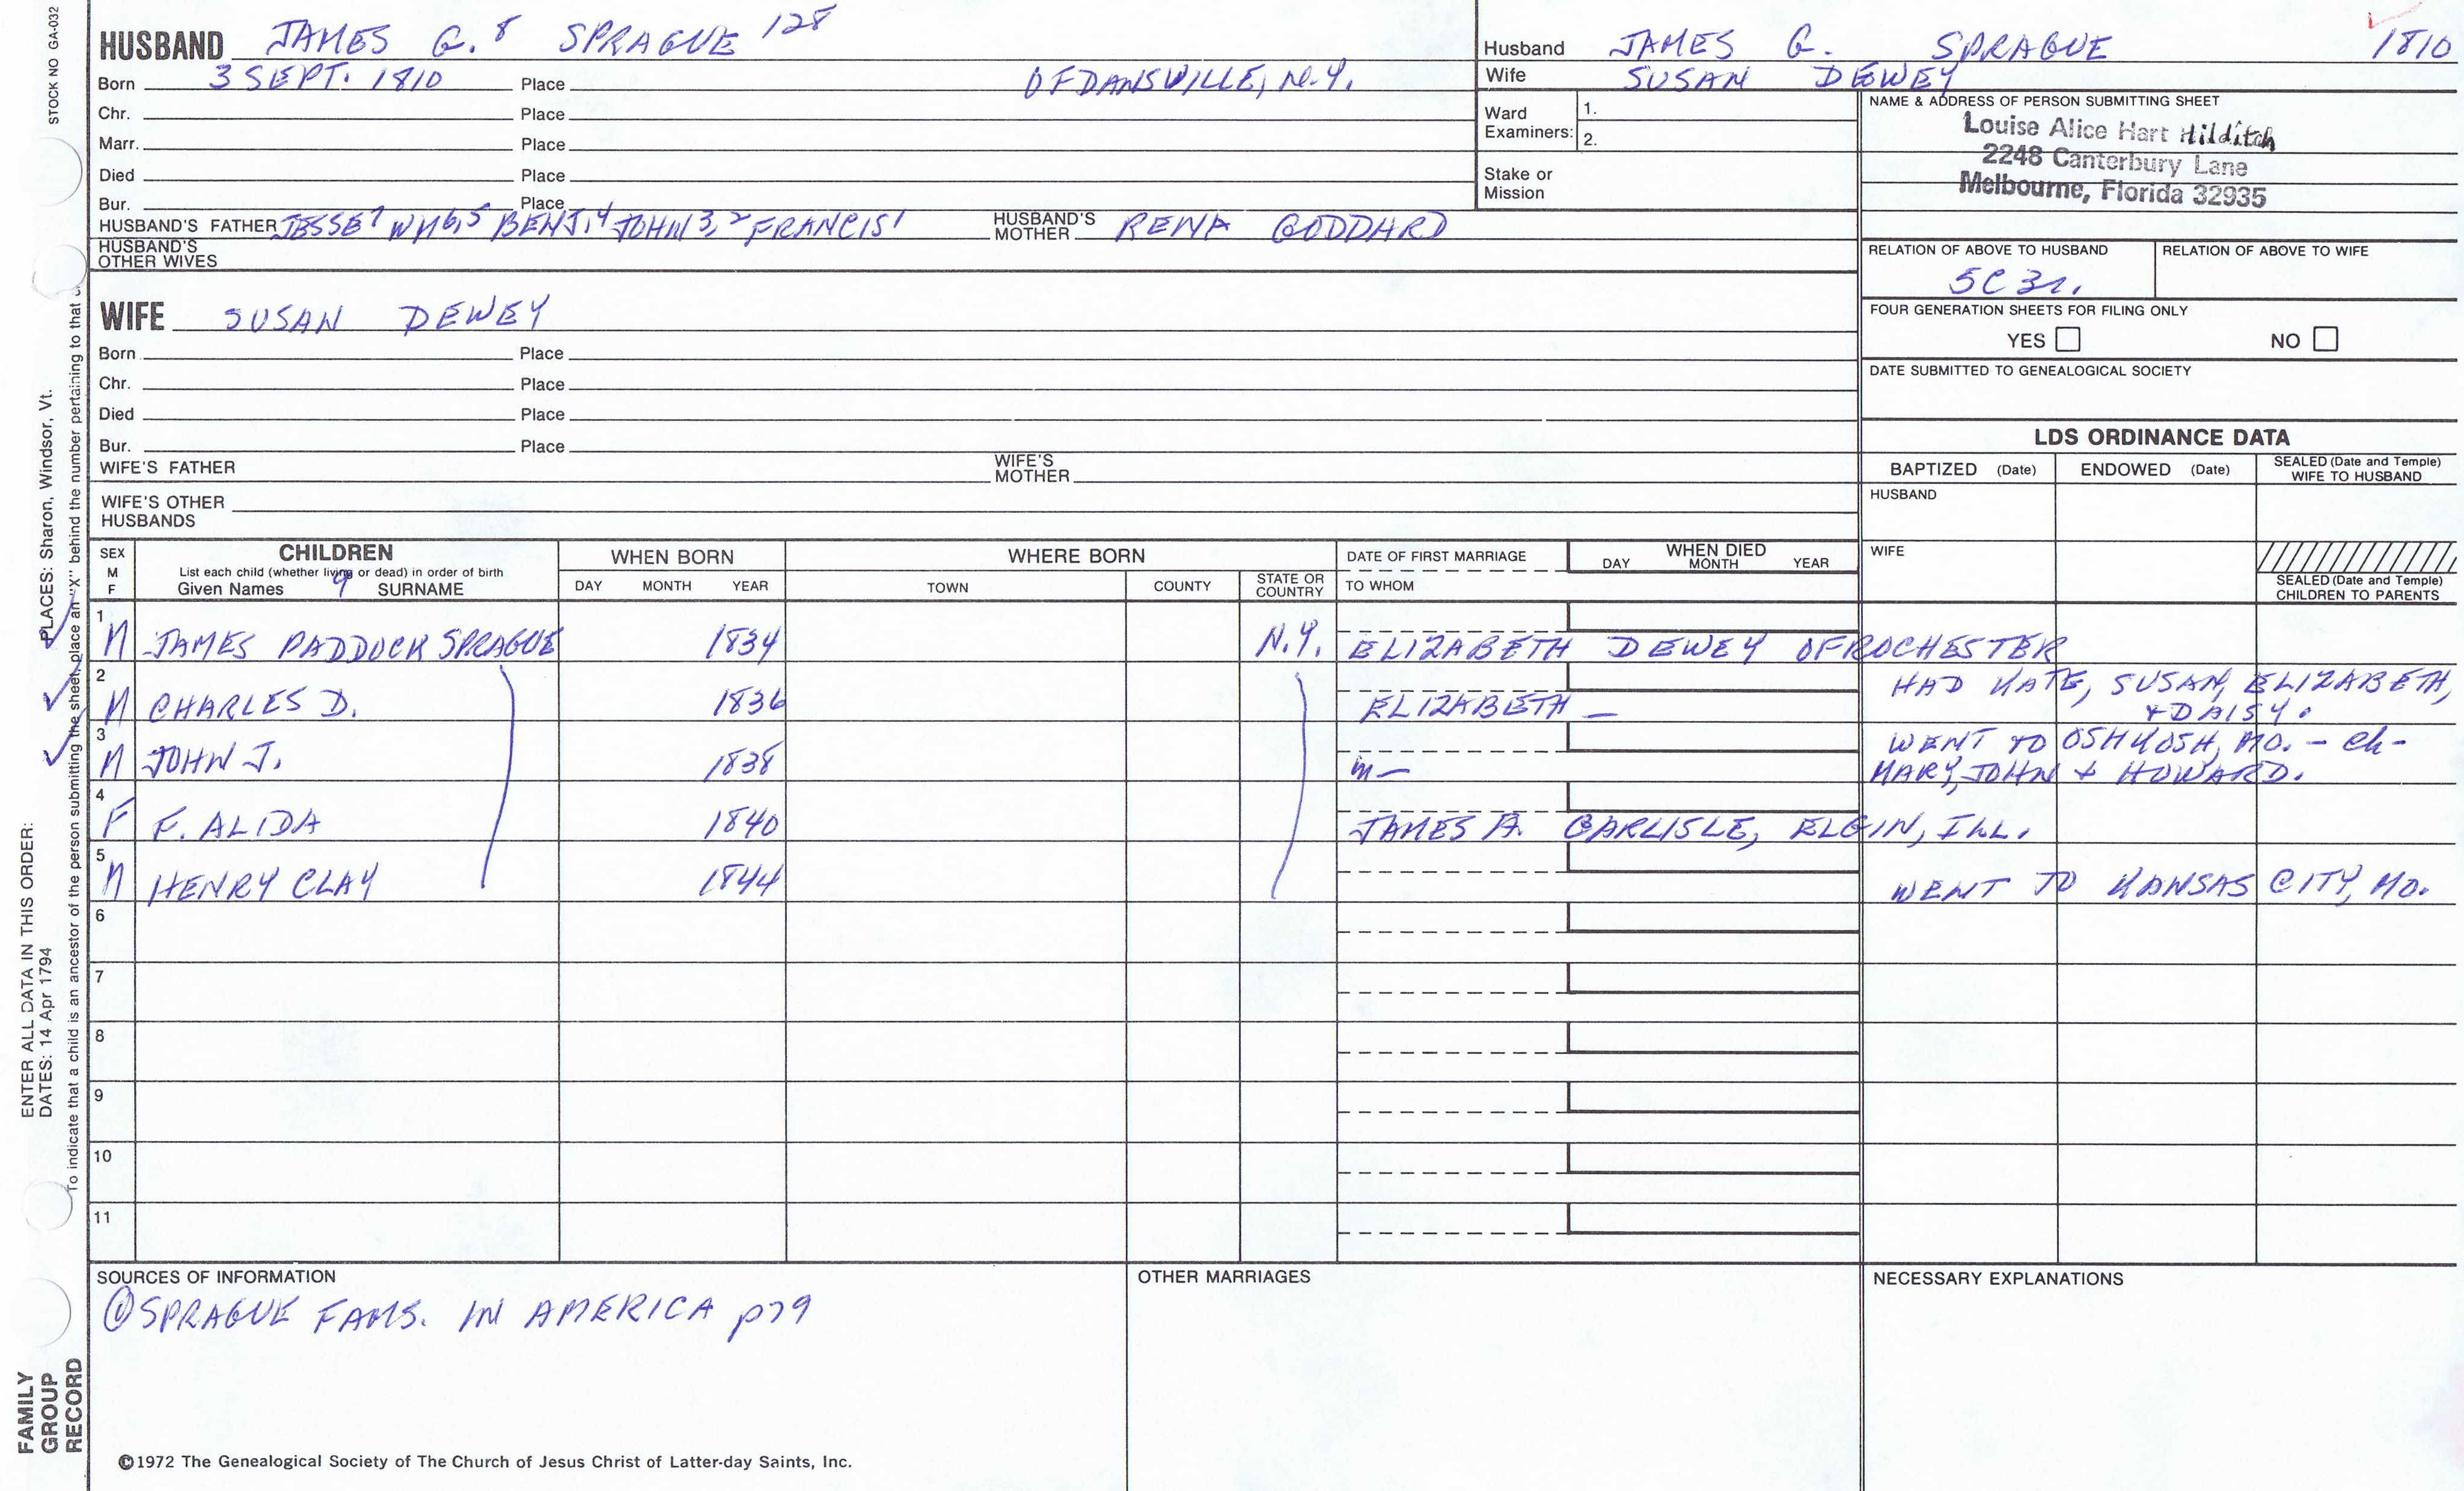 STOCK NO GA-032
HUSBAND JAMES G. 8 SPRAGUE 128
Born 3 SEPT. 1810 Place OF DANSVILLE, N.Y.
Chr. Place
Marr. Place
Died Place
Bur. Place
HUSBAND'S FATHER JESSE7 WM6,5 BENJ,4 JOHN3,2 FRANCIS1 HUSBAND'S MOTHER RENA GODDARD
HUSBAND'S OTHER WIVES
Husband JAMES G. SPRAGUE 1810
Wife SUSAN DEWEY
Ward Examiners: 1. 2.
Stake or Mission
NAME & ADDRESS OF PERSON SUBMITTING SHEET
Louise Alice Hart Hilditch
2248 Canterbury Lane
Melbourne, Florida 32935
RELATION OF ABOVE TO HUSBAND RELATION OF ABOVE TO WIFE
5C3r.
FOUR GENERATION SHEETS FOR FILING ONLY
YES NO
DATE SUBMITTED TO GENEALOGICAL SOCIETY
WIFE SUSAN DEWEY
Born Place
Chr. Place
Died Place
Bur. Place
WIFE'S FATHER WIFE'S MOTHER
WIFE'S OTHER HUSBANDS
LDS ORDINANCE DATA
BAPTIZED (Date) ENDOWED (Date) SEALED (Date and Temple) WIFE TO HUSBAND
HUSBAND
WIFE
SEALED (Date and Temple) CHILDREN TO PARENTS
SEX M F
CHILDREN
List each child (whether living or dead) in order of birth
Given Names 9 SURNAME
WHEN BORN
DAY MONTH YEAR
WHERE BORN
TOWN COUNTY STATE OR COUNTRY
DATE OF FIRST MARRIAGE
TO WHOM
WHEN DIED
DAY MONTH YEAR
1 M JAMES PADDOCK SPRAGUE 1834 N.Y. ELIZABETH DEWEY OF ROCHESTER
2 M CHARLES D. 1836 ELIZABETH — HAD KATE, SUSAN, ELIZABETH, + DAISY.
3 M JOHN J. 1838 m— WENT TO OSHKOSH, MO. - ch- MARY, JOHN + HOWARD.
4 F F. ALIDA 1840 JAMES A. CARLISLE, ELGIN, ILL.
5 M HENRY CLAY 1844 WENT TO KANSAS CITY, MO.
6
7
8
9
10
11
SOURCES OF INFORMATION
① SPRAGUE FAMS. IN AMERICA p79
OTHER MARRIAGES
NECESSARY EXPLANATIONS
©1972 The Genealogical Society of The Church of Jesus Christ of Latter-day Saints, Inc.
FAMILY GROUP RECORD
ENTER ALL DATA IN THIS ORDER:
DATES: 14 Apr 1794 PLACES: Sharon, Windsor, Vt.
To indicate that a child is an ancestor of the person submitting the sheet, place an "X" behind the number pertaining to that